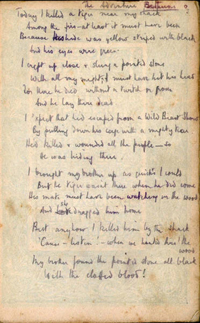 The Adventure
Today I killed a tiger near my shack
Among the
Because his hide was yellow striped with black
And his eyes were green.
I crept up close & slung a pointed stone
With all my might I must have hit his head
For there he died without a twitch or groan
And he lay there dead.
I 'spect that he'd escaped from a Wild Beast Show
By pulling down his cage with a mighty tear
He'd killed & wounded all the people — so
He was hiding there.
I brought my brother up as quick's I could
But the tiger wasn't there when he did come
His mate must have been watching in the wood
And dragged him home.
But anyhow I killed him by the shack
'Cause — listen! — when we hunted thro' the
wood
My brother found the pointed stone all black
With the clotted blood!